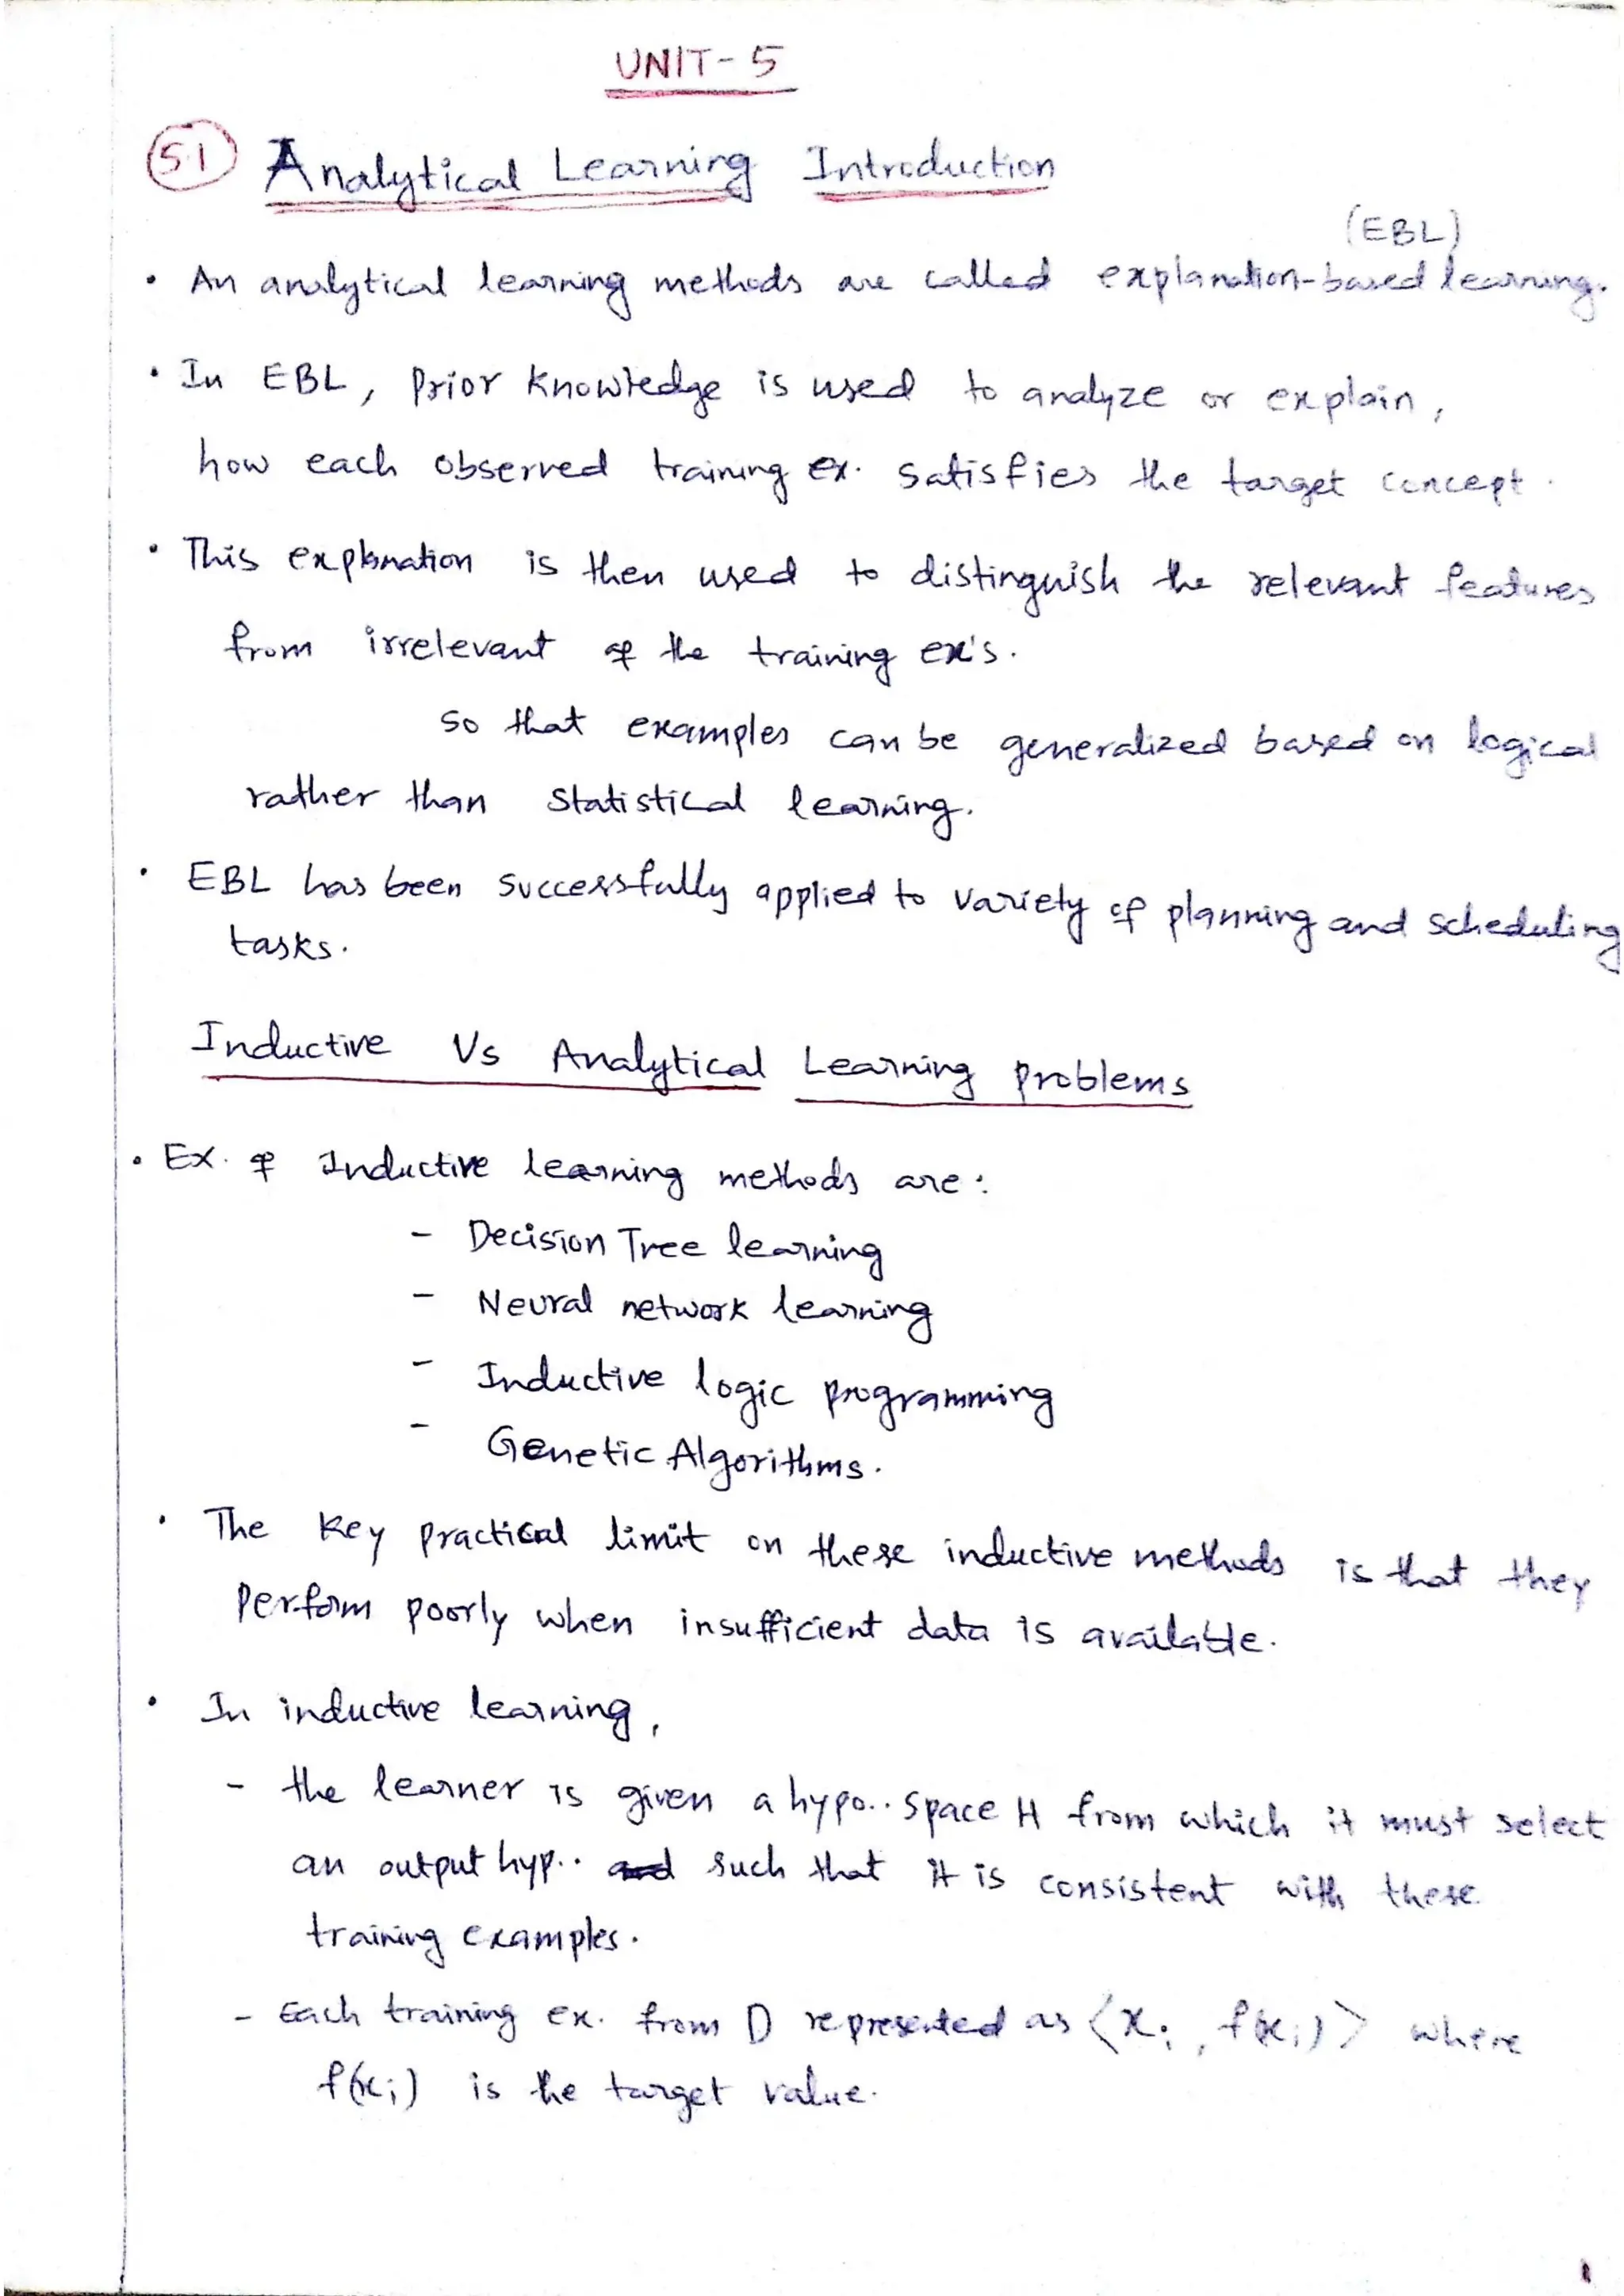 UNIT-5
5.1 Analytical Learning Introduction
(EBL)
• An analytical learning methods are called explanation-based learning.
• In EBL, Prior Knowledge is used to analyze or explain,
how each observed training ex. satisfies the target concept.
• This explanation is then used to distinguish the relevant features
from irrelevant of the training ex's.
So that examples can be generalized based on logical
rather than statistical learning.
• EBL has been successfully applied to variety of planning and scheduling
tasks.
Inductive Vs Analytical Learning problems
• Ex. of Inductive learning methods are:
- Decision Tree learning
- Neural network learning
- Inductive logic programming
- Genetic Algorithms.
• The Key practical limit on these inductive methods is that they
Perform poorly when insufficient data is available.
• In inductive learning,
- the learner is given a hypo.. space H from which it must select
an output hyp.. such that it is consistent with these
training examples.
- Each training ex. from D represented as ⟨xi, f(xi)⟩ where
f(xi) is the target value.
1